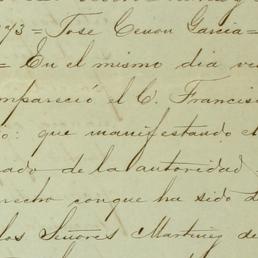 73 = Jose Cenon Garcia =
= En el mismo dia ve
mpareció el C. Francis
o: que manifestando el
ado de la autoridad
recho conque ha sido d
los Señores Martinez de